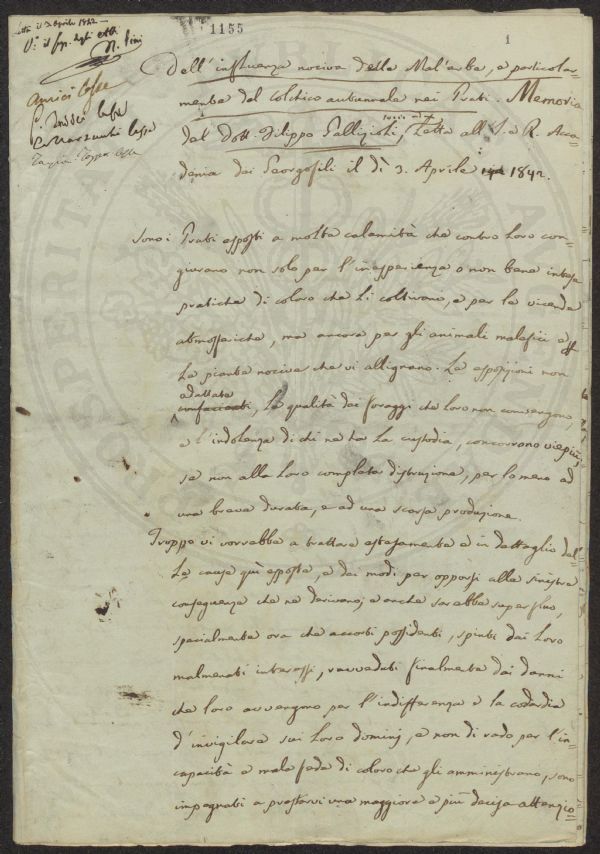 1155
1
Letta il 3 Aprile 1842
Dell'influenza nociva delle Mal'erbe, e particolar=
mente del Colchico autunnale nei Prati. Memoria
del Dott. Filippo Gallizioli, Letta all'I. e R. Acca=
demia dei Georgofili il dì 3. Aprile 1842.
Sono i Prati esposti a molte calamità che contro loro con=
giurano non solo per l'inesperienza o non bene intese
pratiche di coloro che li coltivano, e per le vicende
atmosferiche, ma ancora per gli animali malefici e
le piante nocive che vi allignano. Le esposizioni non
adattate
, le qualità dei foraggi che loro non convengono,
e l'indolenza di chi ne ha la custodia, concorrono viepiù,
se non alla loro completa distruzione, per lo meno ad
una breve durata, e ad una scarsa produzione.
Troppo vi vorrebbe a trattare estesamente e in dettaglio del=
le cause quì esposte, e dei modi per opporsi alle sinistre
conseguenze che ne derivano; e anche sarebbe superfluo,
specialmente ora che accorti possidenti, spinti dai loro
malmenati interessi, ravveduti finalmente dei danni
che loro avvengono per l'indifferenza e la codardia
d'invigilare sui loro dominj, e non di rado per l'in=
capacità e mala fede di coloro che gli amministrano, sono
impegnati a prestarvi una maggiore e più decisa attenzio=